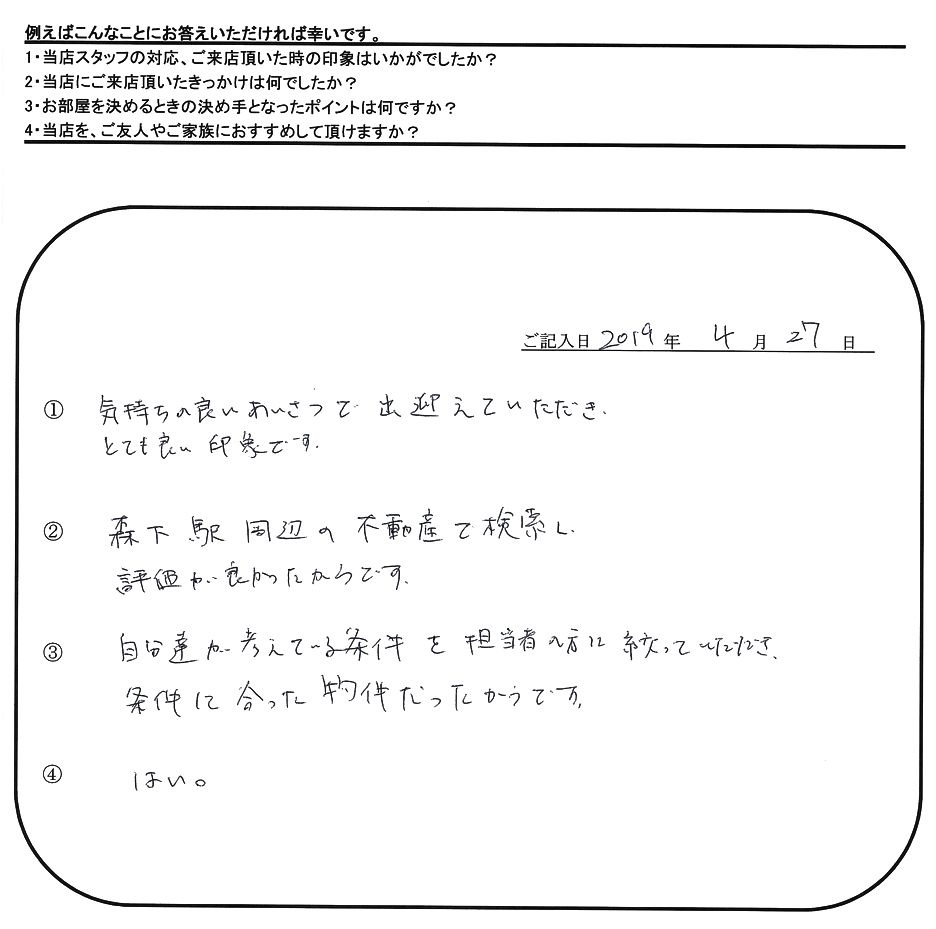 例えばこんなことにお答えいただければ幸いです。
1・当店スタッフの対応、ご来店頂いた時の印象はいかがでしたか？
2・当店にご来店頂いたきっかけは何でしたか？
3・お部屋を決めるときの決め手となったポイントは何ですか？
4・当店を、ご友人やご家族におすすめして頂けますか？
ご記入日 2019 年 4 月 27 日
① 気持ちの良いあいさつで出迎えていただき、
とても良い印象です。
② 森下駅周辺の不動産で検索し
評価が良かったからです。
③ 自分達が考えている条件を担当者の方に絞っていただき、
条件に合った物件だったからです。
④ はい。